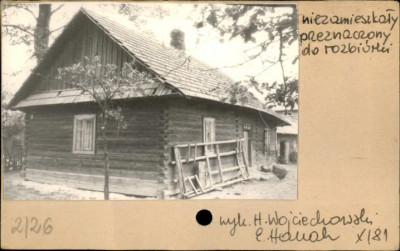 niezamieszkały
przeznaczony
do rozbiórki
2/26
wyk. H. Wojciechowski
X/81